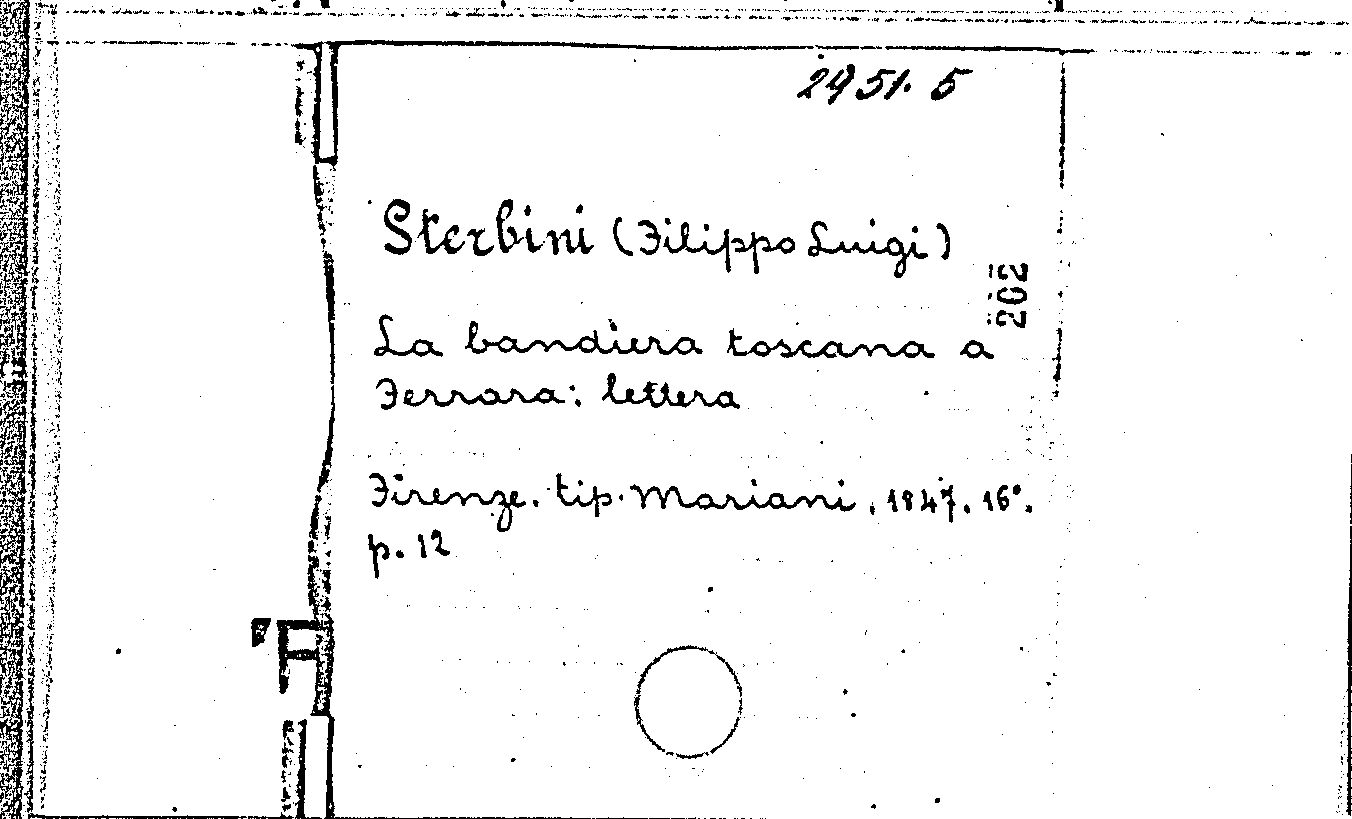 2951. 5
Sterbini (Filippo Luigi)
202
La bandiera toscana a
Ferrara: lettera
Firenze. tip. Mariani, 1847. 16°.
p. 12